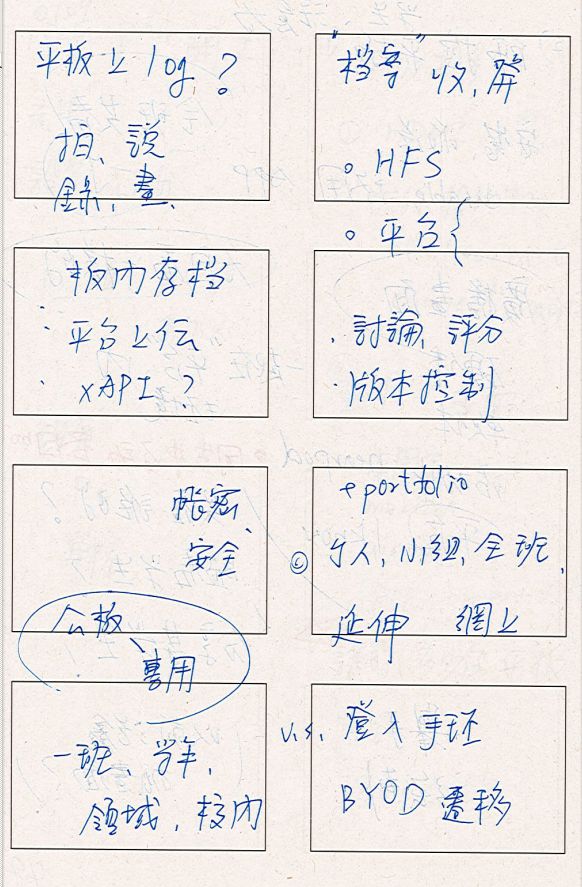 平板上 log?
拍、說
錄、畫、
"档案" 收,屏
。HFS
。平台{
板內存档
· 平台上伝
· xAPI?
· 討論、評分
· 版本控制
帳密、
安全
公板、
專用
e portfolio
© 个人,小組,全班,
延伸 網上
一班、學年,
領域,校內
v.s. 登入手环
BYOD 遷移